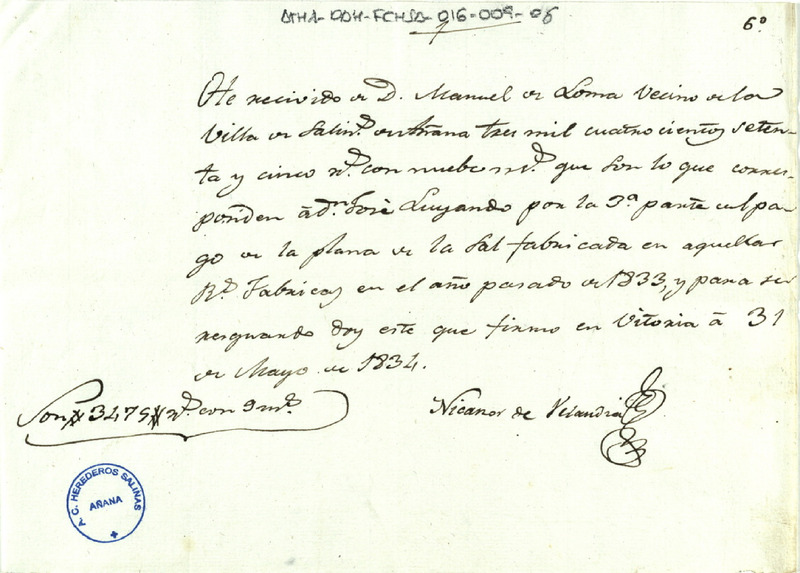 ATHA-DDH-FCHSA-016-009-06
6º
He recivido de D. Manuel de Loma Vecino de la
Villa de Salin.s de Añana tres mil cuatrocientos seten-
ta y cinco r.s con nuebe m.s que son lo que corres-
ponden á d.n José Luyando por la 3ª parte del pa-
go de la plana de la Sal fabricada en aquellas
R.s Fabricas en el año pasado de 1833, y para su
resguardo doy este que firmo en Vitoria á 31
de Mayo de 1834.
Son 3475 r.s con 9 m.s
Nicanor de Velandia
C. HEREDEROS SALINAS
AÑANA